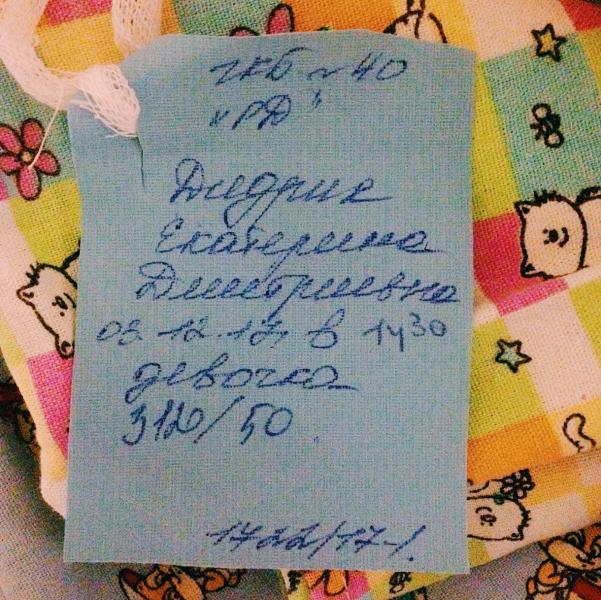 ГКБ № 40
"РД"
Дидрик
Екатерина
Дмитриевна
03.12.17, в 14 30
девочка
3120/50
1722/17-1.